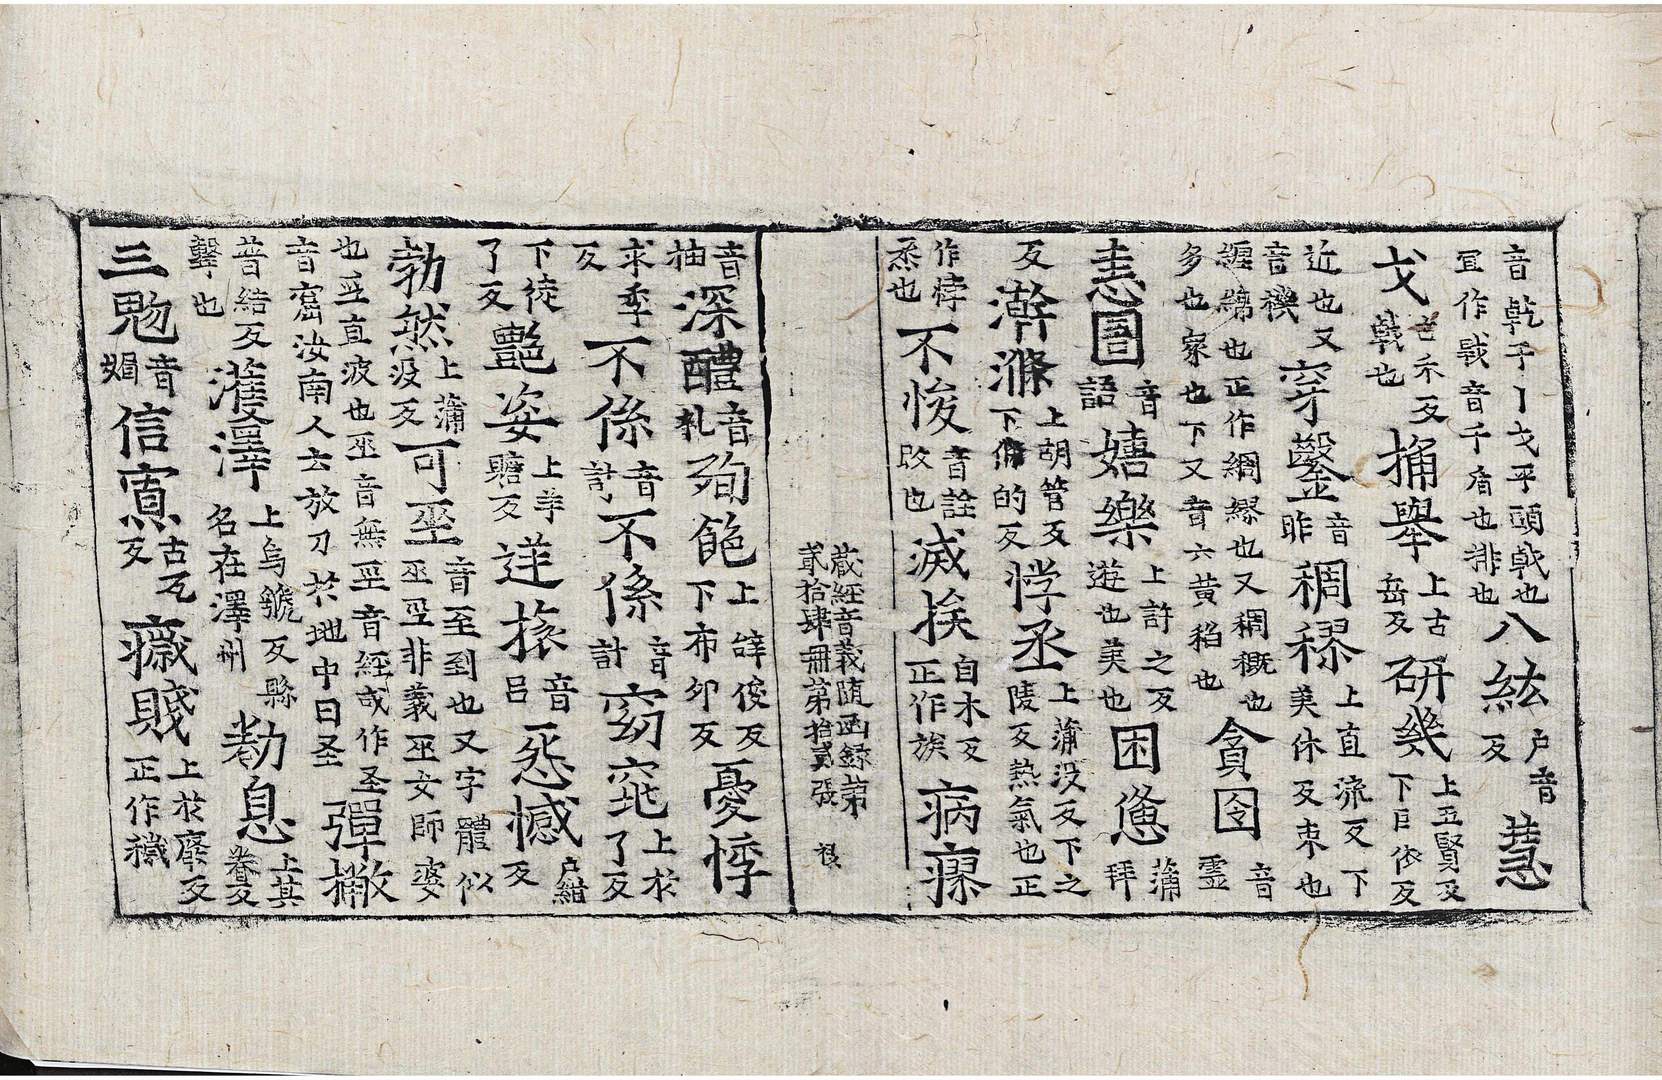 音乹干丨戈平頭戟也冝作戟音千盾也排也八紘戶音反慧
戈苦禾反戟也捅舉上古岳反研幾上五賢反下巨依反
近也又音機穿鑿音昨稠穋上直流反下美休反束也
纒綿也正作綢繆也又稠穊也多也家也下又音六黃稻也貪囹音霊
恚圄音語嬉樂上許之反遊也美也困憊蒲拜
反澣滌上胡管反下的反悖丞上蒲没反下之陵反熱氣也正
作悖烝也不悛音詮改也滅挨自木反正作族病瘝
藏經音義随函録第貳拾肆冊第拾貳張 根
音抽深醴音礼殉飽上辝俊反下布卯反憂悸
求季反不係音計不係音計窈窕上於了反
下徒了反豔姿上羊贍反音吕憾戶紺反
勃然上蒲没反可巫音至到也又字體似巫坙非義巫女師婆
也坙直波也巫音無坙音經或作圣音窟汝南人云放刀於地中曰圣彈撇
普結反擊也濩澤上烏虢反縣名在澤州勌息上其卷反
三魅音媚信寡古瓦反賤上於廢反正作穢